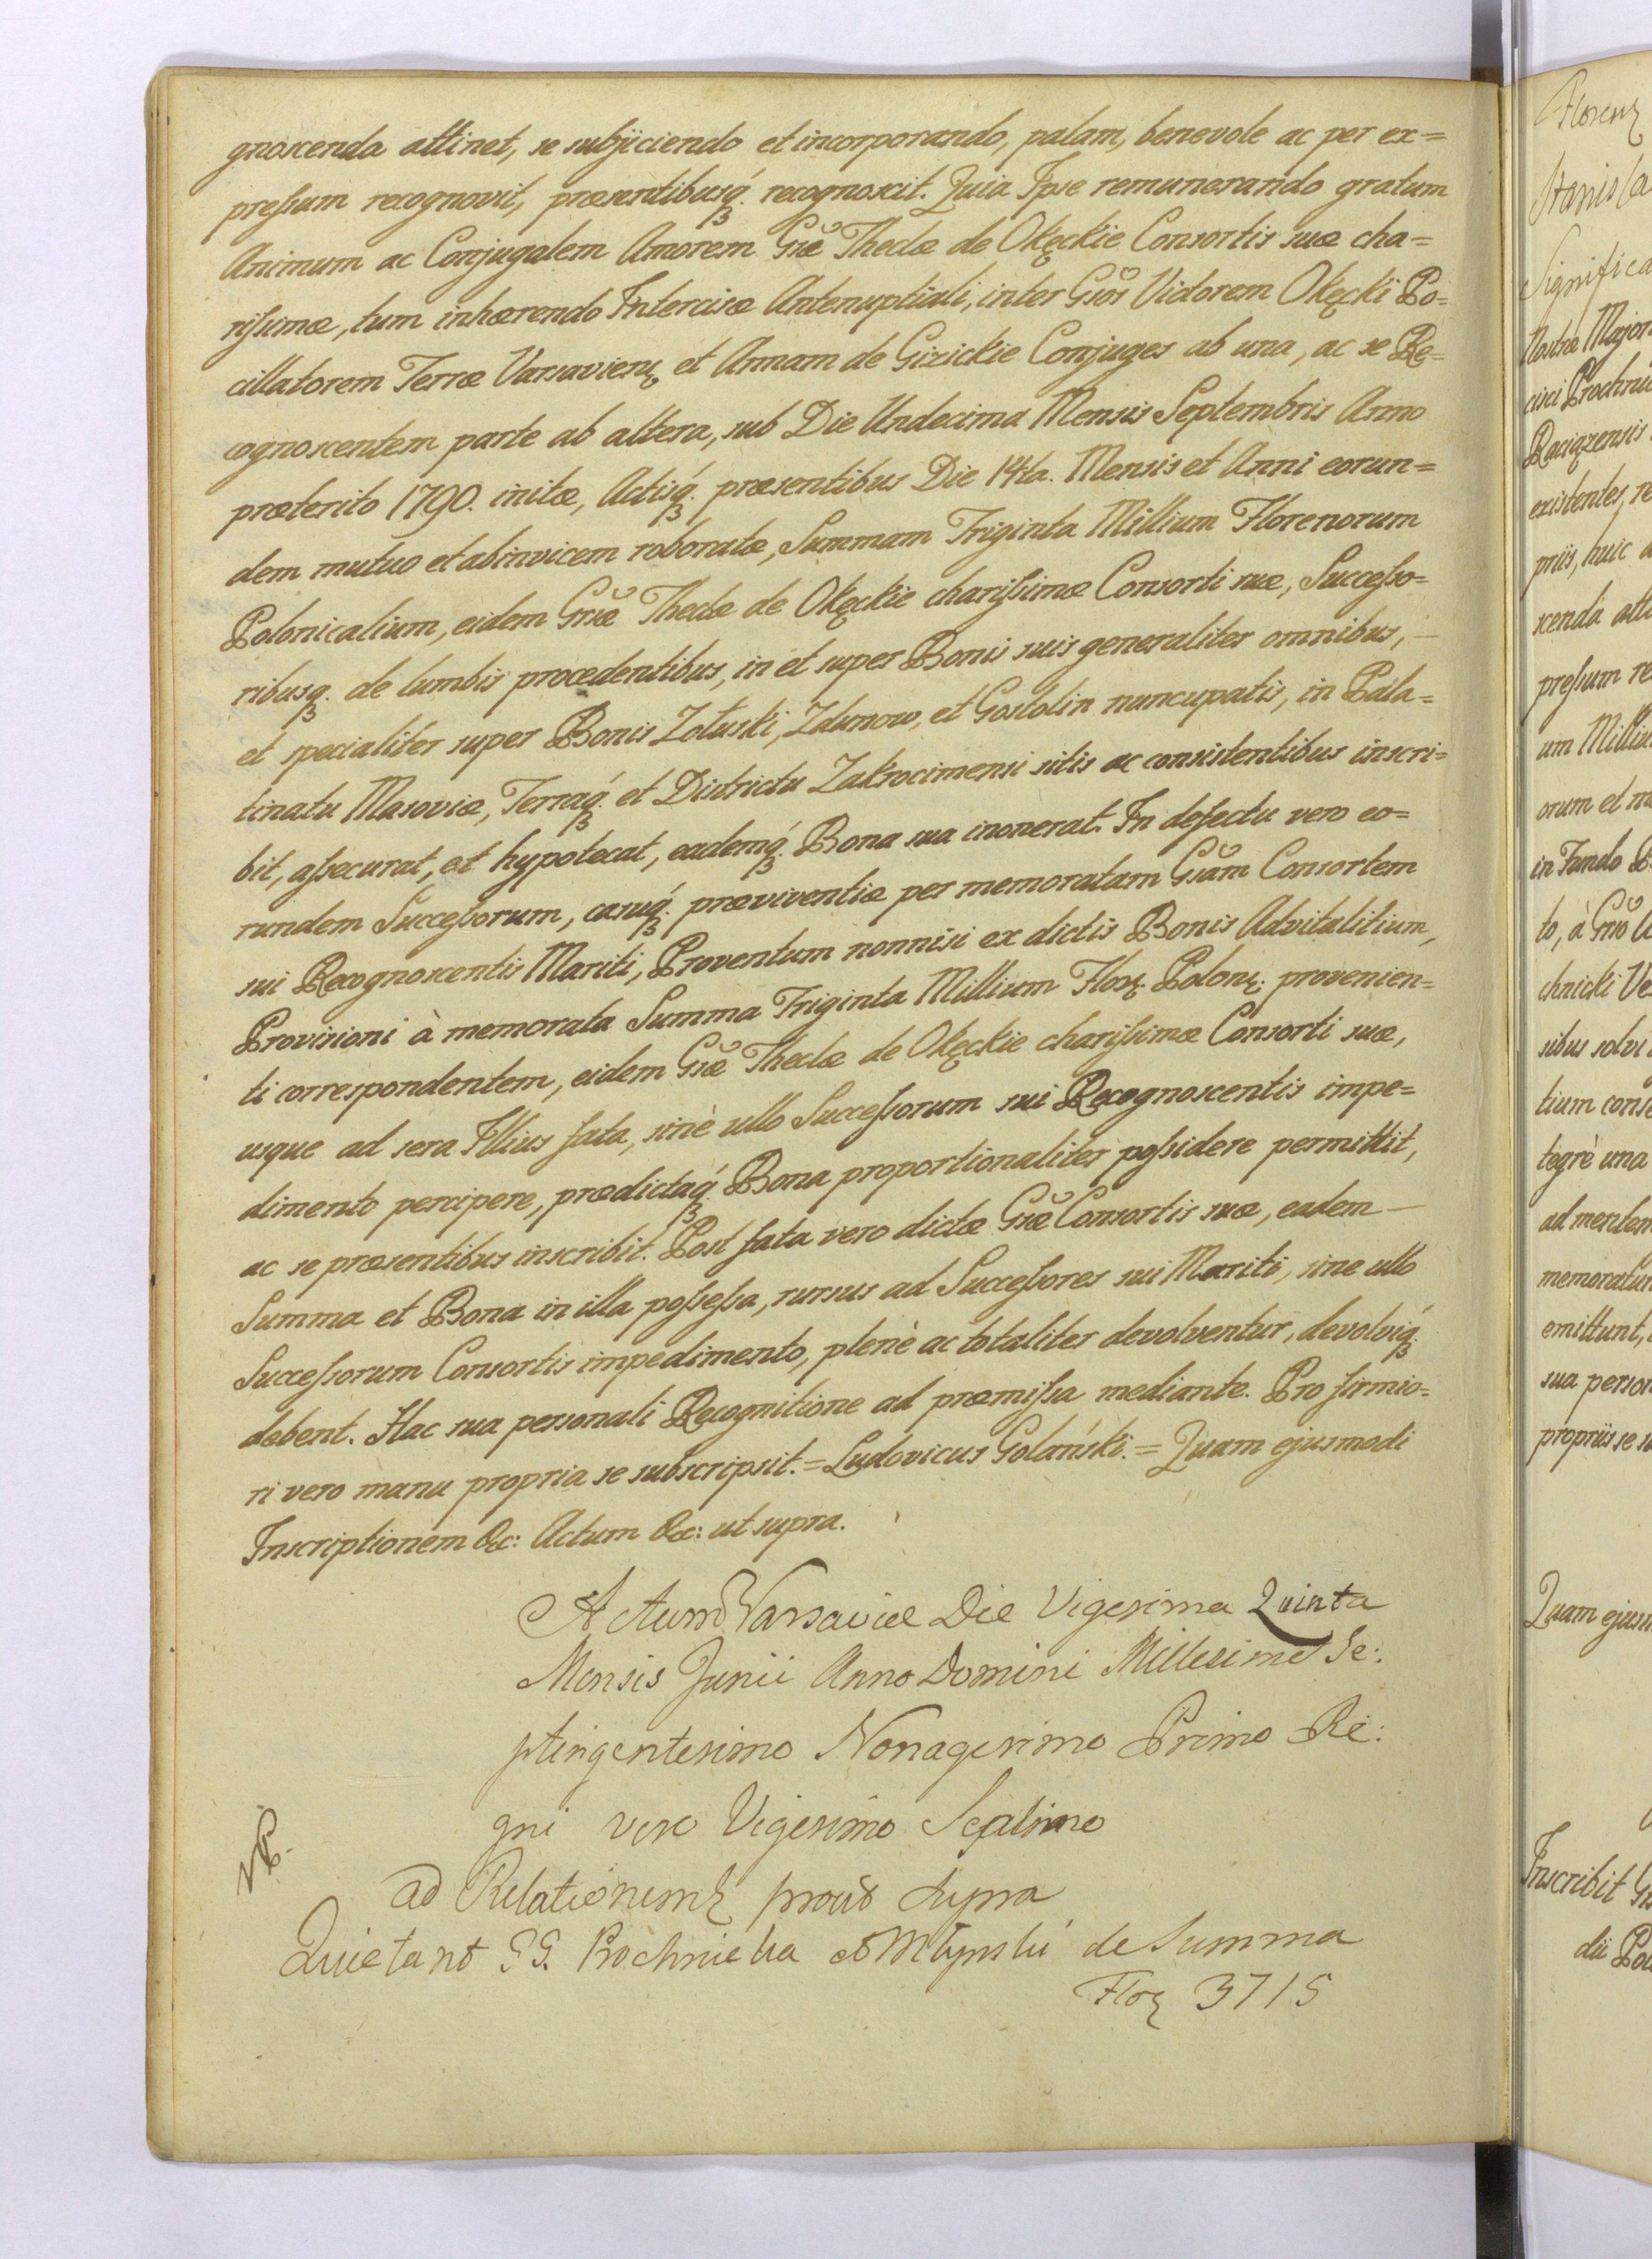 gnoscenda attinet, se subjiciendo et incorporando, palam, benevole ac per ex=
preſsum recognovit, præsentibusq́ꝫ recognoscit. Quia Ipse remunerando gratum
Animum ac Conjugalem Amorem Gsæ Theclæ de Okęckie Consortis suæ cha=
riſsimæ, tum inhærendo Intercisæ Antenuptiali, inter Gsos Victorem Okęcki Po=
cillatorem Terræ Varsavienꝫ et Annam de Gizickie Conjuges ab una, ac se Re=
cognoscentem parte ab altera, sub Die Undecima Mensis Septembris Anno
præterito 1790. initæ, Actisq́ꝫ præsentibus Die 14ta. Mensis et Anni eorun=
dem mutuo et abinvicem roboratæ, Summam Triginta Millium Florenorum
Polonicalium, eidem Gsæ Theclæ de Okęckie chariſsimæ Consorti suæ, Succeſso=
ribusq́ꝫ de lumbis procedentibus, in et super Bonis suis generaliter omnibus, —
et specialiter super Bonis Zołuski, Zdunow, et Gostolin nuncupatis, in Pala=
tinatu Masoviæ, Terraq́ꝫ et Districtu Zakrocimensi sitis ac consistentibus inscri=
bit, aſsecurat, et hypotecat, eademq́ꝫ Bona sua inonerat. In defectu vero eo=
rundem Succeſsorum, casuq́ꝫ præviventiæ per memoratam Gsam Consortem
sui Recognoscentis Mariti, Proventum nonnisi ex dictis Bonis Advitalitium,
Provisioni à memorata Summa Triginta Millium Florꝫ. Polonꝫ. provenien=
ti correspondentem, eidem Gsæ Theclæ de Okęckie chariſsimæ Consorti suæ,
usque ad sera Illius fata, sinè ullo Succeſsorum sui Recognoscentis impe=
dimento percipere, prædictaq́ꝫ Bona proportionaliter poſsidere permittit,
ac se præsentibus inscribit. Post fata vero dictæ Gsæ Consortis suæ, eadem —
Summa et Bona in illa poſseſsa, rursus ad Succeſsores sui Mariti, sine ullo
Succeſsorum Consortis impedimento, plenè ac totaliter devolventur, devolviq́ꝫ
debent. Hac sua personali Recognitione ad præmiſsa mediante. Pro firmio=
ri vero manu propria se subscripsit. = Ludovicus Golański. = Quam ejusmodi
Inscriptionem &c: Actum &c: ut supra.
Actum Varsaviæ Die Vigesima Quinta
Mensis Junii Anno Domini Millesimo Se:
ptingentesimo Nonagesimo Primo Re:
gni vero Vigesimo Septimo
ad Relationemꝫ prout supra
Quietant GG. Prochnicka et Młynski de Summa
Florꝫ 3715